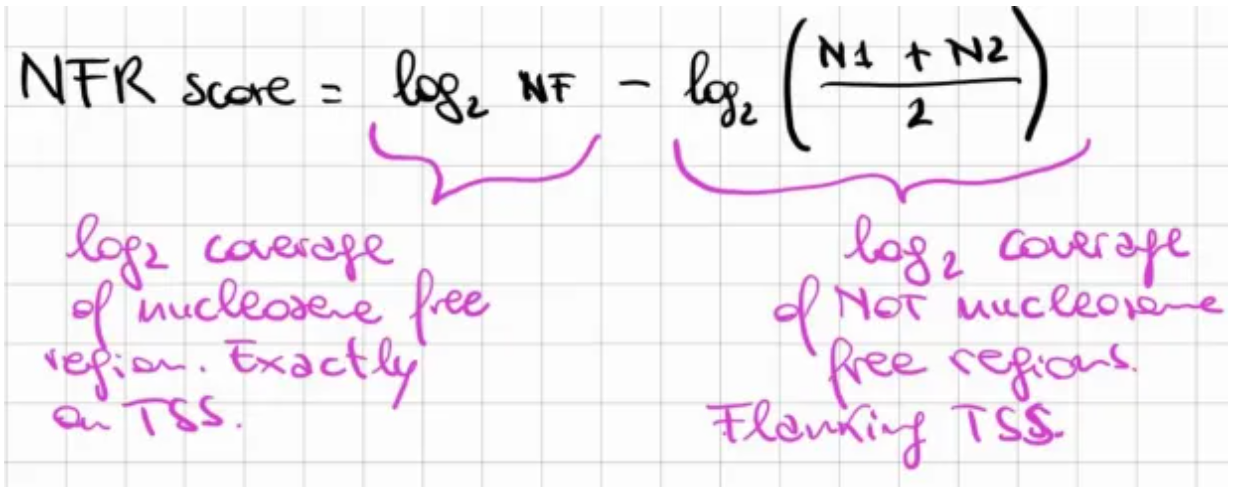 NFR score = log₂ NF - log₂ ((N1 + N2)/2)
log₂ coverage
of nucleosene free
region. Exactly
on TSS.
log₂ coverage
of NOT nucleosome
free regions.
Flanking TSS.